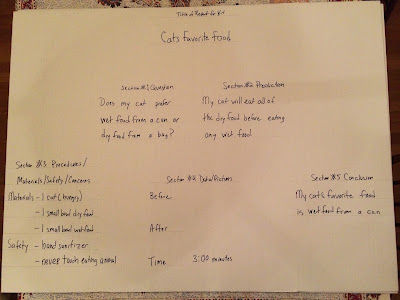 Title of Report for Kit
Cat's Favorite Food
Section #1 Question
Does my cat prefer
wet food from a can or
dry food from a bag?
Section #2 Prediction
My cat will eat all of
the dry food before eating
any wet food
Section #3 Procedures/
Materials/Safety/Concerns
Materials - 1 cat (hungry)
- 1 small bowl dry food
- 1 small bowl wet food
Safety - hand sanitizer
- never touch eating animal
Section #4 Data/Pictures
Before
After
Time 3:00 minutes
Section #5 Conclusion
My cat's favorite food
is wet food from a can